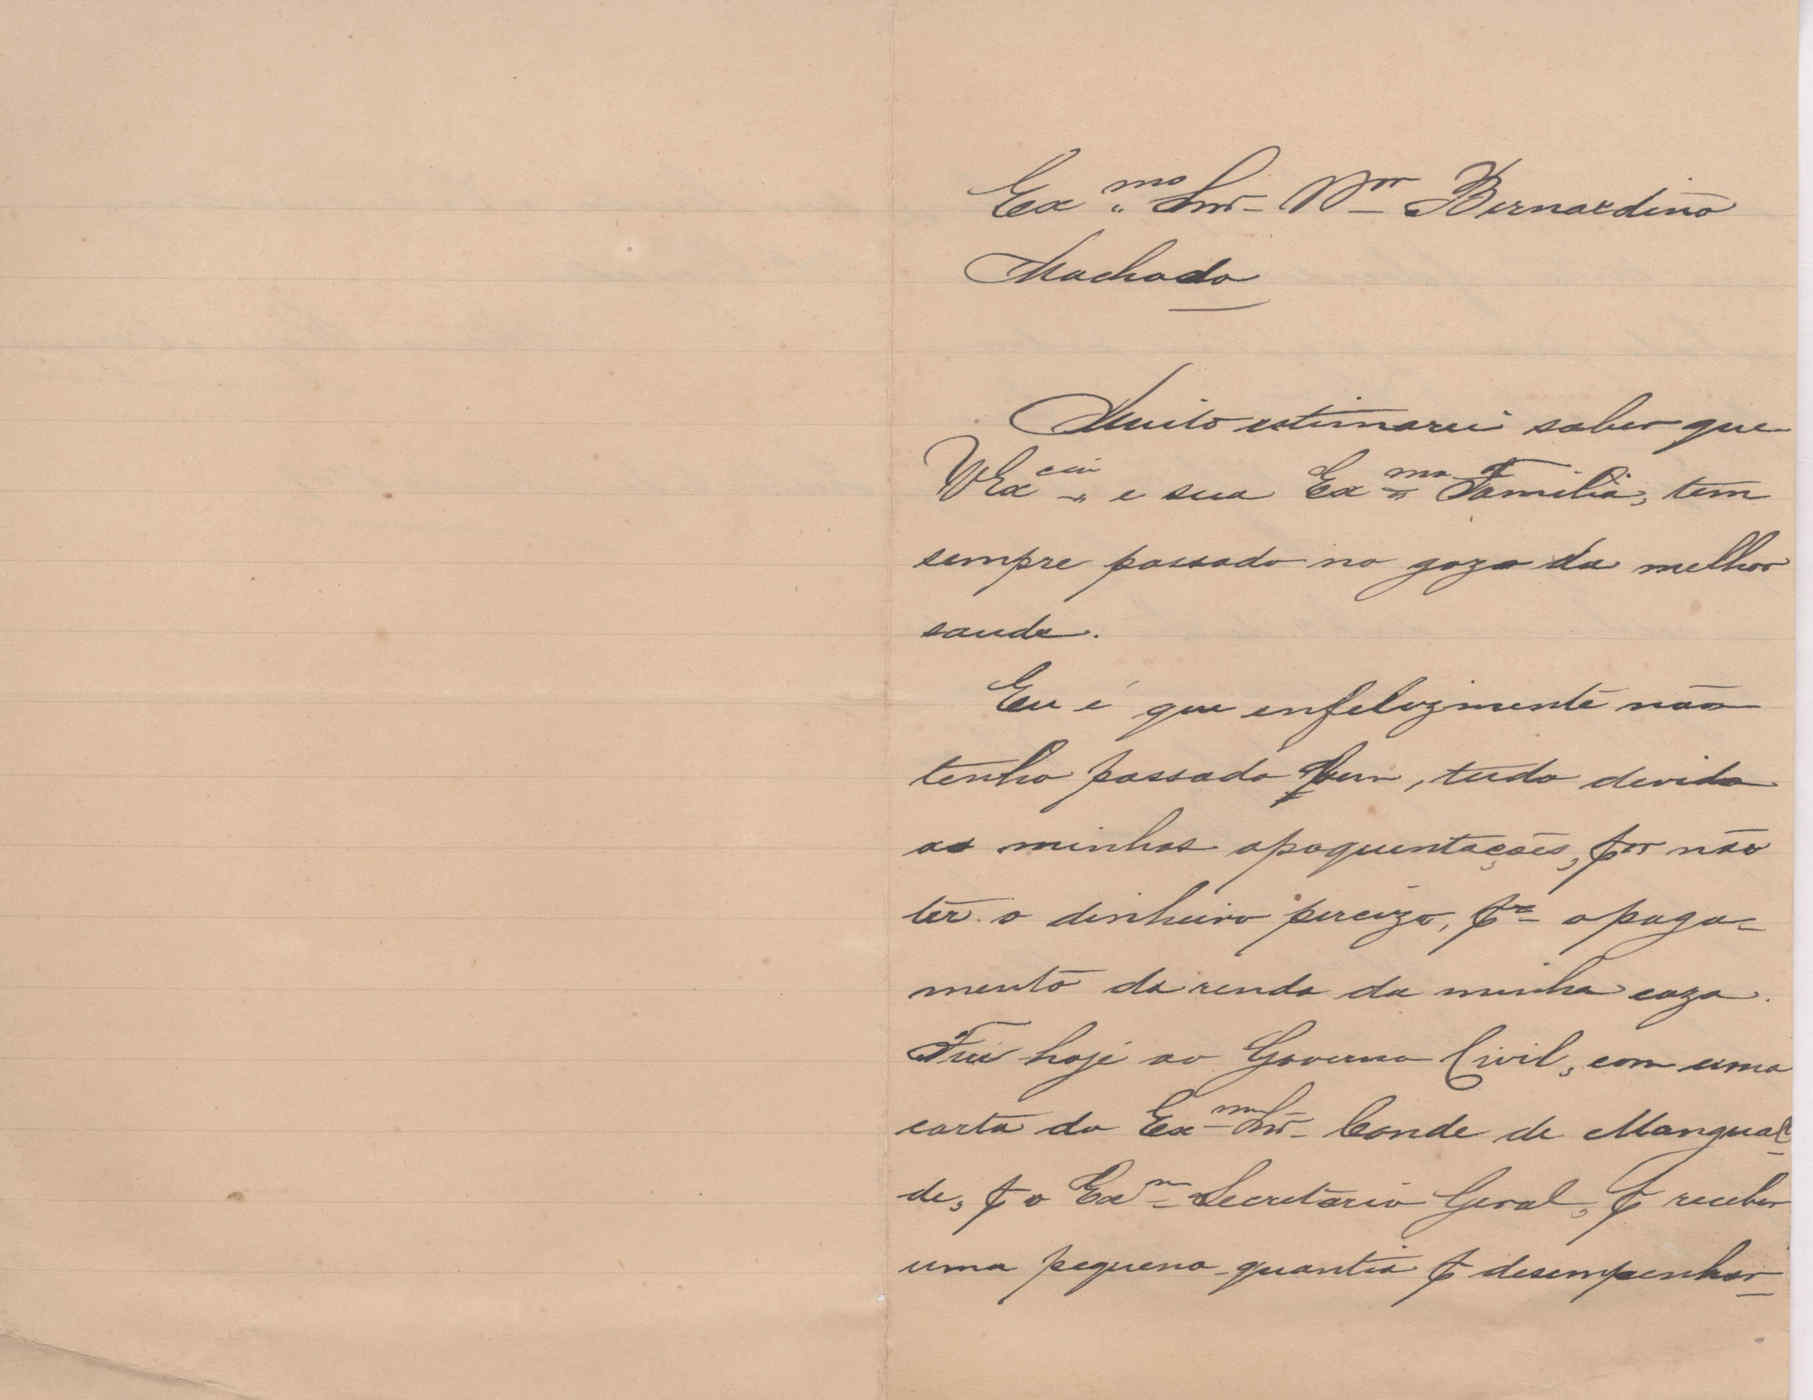 Ex.mo Snr. Dor Bernardino
Machado
Muito estimarei saber que
V Ex.cia e sua Ex.ma Familia, tem
sempre passado no gozo da melhor
saude.
Eu é que enfelizmente não
tenho passado bem, tudo devido
as minhas apoquentações, por não
ter o dinheiro percizo, pa o paga-
mento da renda da minha caza.
Fui hoje ao Governo Civil, com uma
carta do Ex.mo Snr. Conde de Mangual-
de, p o Exmo Secretario Geral, p receber
uma pequena quantia p desempenhar